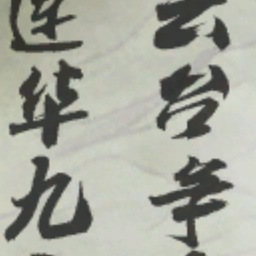 云台争
连华九